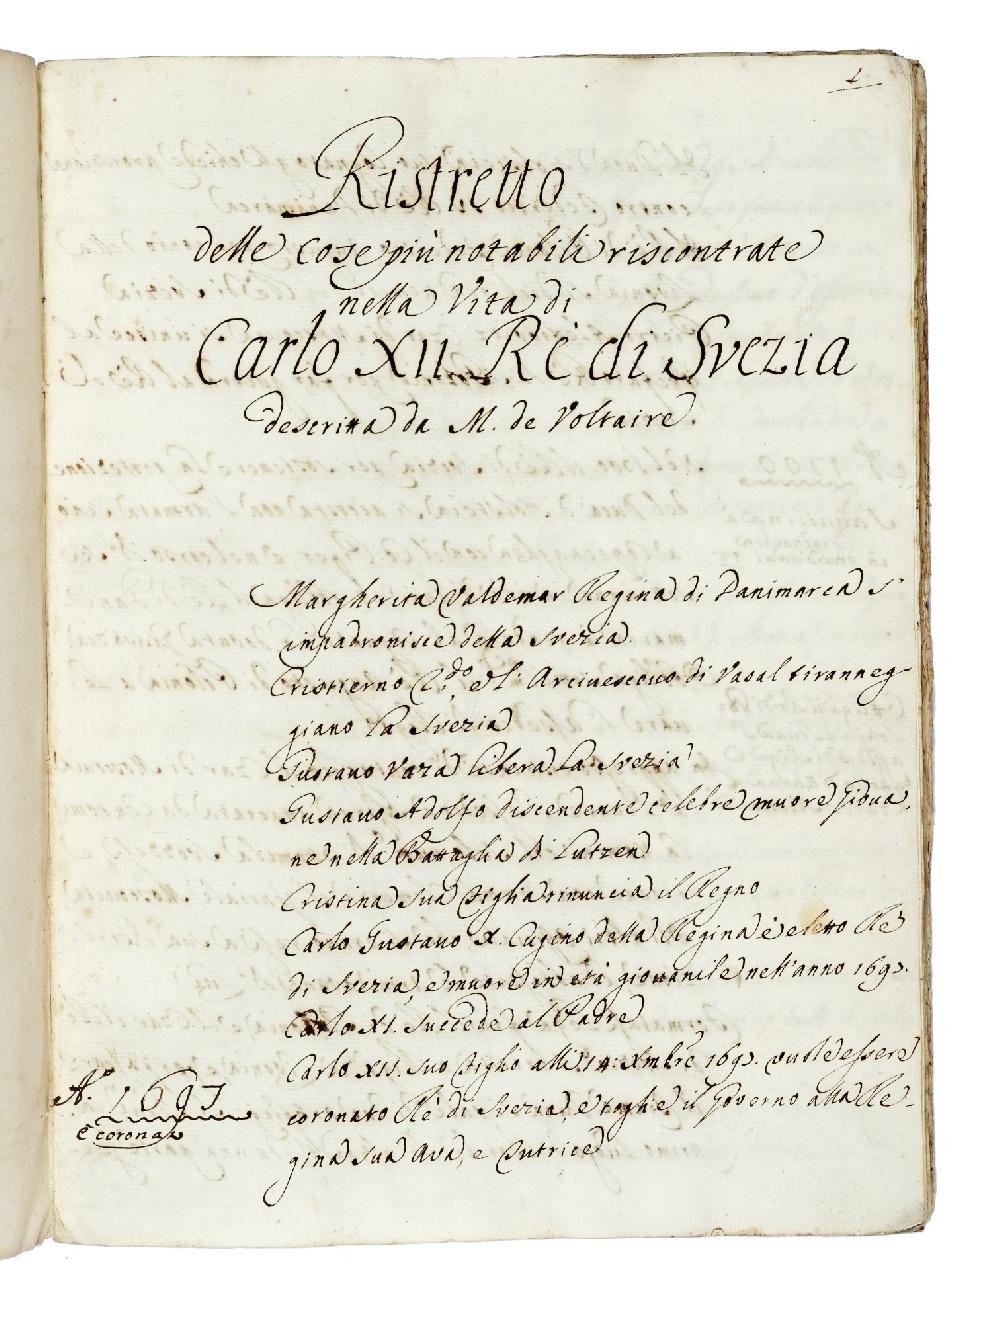 1
Ristretto
delle Cose più notabili riscontrate
nella Vita di
Carlo XII Rè di Svezia
descritta da M. de Voltaire.
Margherita Valdemar Regina di Danimarca s'
impadronisce della Svezia
Cristierno 2.do e l'Arcivescovo di Upsal tiranneg-
giano la Svezia
Gustavo Vaza libera la Svezia
Gustavo Adolfo discendente celebre muore giova,
ne nella Battaglia di Lutzen
Cristina sua figlia rinuncia il Regno
Carlo Gustavo X. Cugino della Regina è eletto Rè
di Svezia, e muore in età giovanile nell'anno 1697.
Carlo XI. succede al Padre
Carlo XII. suo figlio alli 14: Xmbre 1697. vuole essere
coronato Rè di Svezia, e toglie il Governo alla Re-
gina sua Ava, e Tutrice
A.o 1697
è coronato